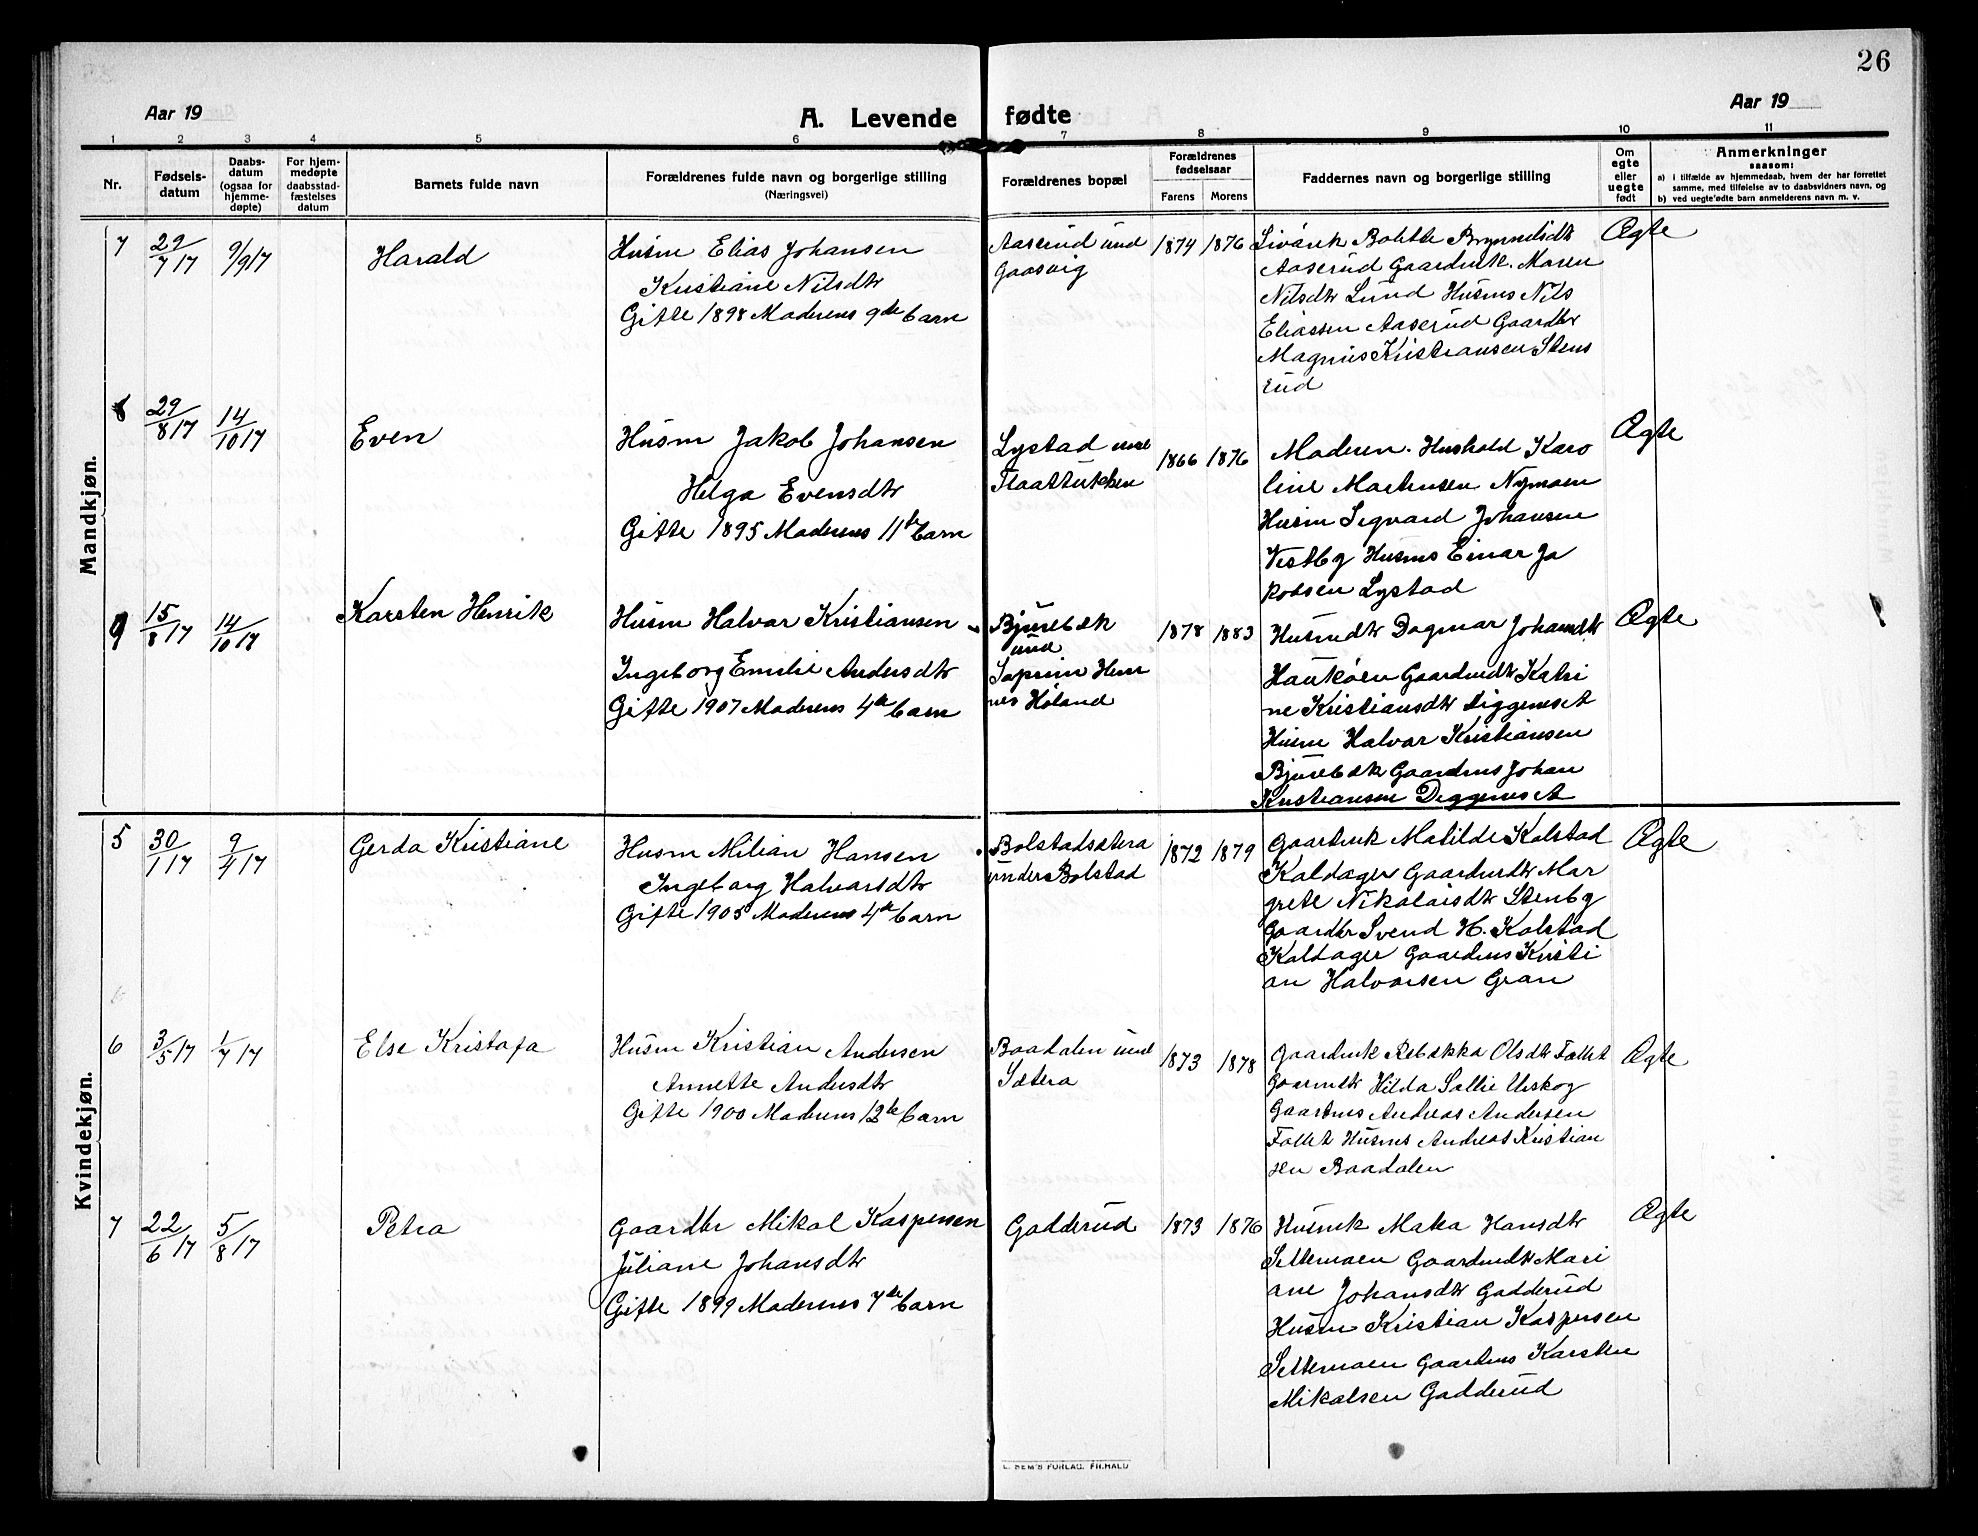 26
Aar 19
A. Levende fødte
Aar 19
1 2 3 4 5 6 7 8 9 10 11
Nr.
Fødsels-
datum
Daabs-
datum
(ogsaa for
hjemme-
døpte)
For hjem-
medøpte
daabsstad-
fæstelses
datum
Barnets fulde navn
Forældrenes fulde navn og borgerlige stilling
(Næringsvei)
Forældrenes bopæl
Forældrenes
fødselsaar
Farens Morens
Faddernes navn og borgerlige stilling
Om
egte
eller
uegte
født
Anmerkninger
saasom:
a) i tilfælde av hjemmedaab, hvem der har forrettet
samme, med tilføielse av to daabsvidners navn, og
b) ved uegte fødte barn anmelderens navn m. v.
Mandkjøn.
7
29/7 17
9/9 17
Harald
Husm Elias Johansen
Kristiane Nilsdtr
Gifte 1898 Moderens 9de barn
Aaserud und
Gaasvig
1874 1876
Bolette Brynnildsdtr
Aaserud Gaardmk. Maren
Nilsdtr Lund Husms Nils
Eliassen Aaserud Gaardbr
Magnus Kristiansen Stens
rud
Ægte
8
29/8 17
14/10 17
Even
Husm Jakob Johansen
Helga Evensdtr
Gifte 1895 Moderens 11te barn
Lystad und
1866 1876
Moderen. Hushold Karo
line Martinsen Nymoen
Husm Sigvard Johansen
Vestby Husms Einar Ja
kobsen Lystad
Ægte
9
15/8 17
14/10 17
Karsten Henrik
Husm Halvar Kristiansen
Ingeborg Emilie Andersdtr
Gifte 1907 Moderens 4de barn
Bjurebæk
und
Søprim Hem
nes Høland
1878 1883
Husmdtr Dagmar Johansdtr
Haukøen Gaardmdtr Katri
ne Kristiansdtr Diggeruset
Husm Halvar Kristiansen
Bjurebæk Gaardms Johan
Kristiansen Diggeruset
Ægte
Kvindekjøn.
5
30/1 17
9/4 17
Gerda Kristiane
Husm Milian Hansen
Ingeborg Halvarsdtr
Gifte 1905 Moderens 4de barn
Bolstadsætera
under Bolstad
1872 1879
Gaardmk Matilde Kolstad
Kaldager Gaardmdtr Mar
grete Nikolaisdtr Stenby
Gaardbr Svend H. Kolstad
Kaldager Gaardms Kristi
an Halvarsen Gran
Ægte
6
3/5 17
1/7 17
Else Kristofa
Husm Kristian Andersen
Annette Andersdtr
Gifte 1900 Moderens 12te barn
Baadalen und
Sætera
1873 1878
Gaardmk Rebækka Olsdtr Fallet
Gaarmdtr Hilda Sallie Urskog
Gaardms Andreas Andersen
Fallet Husms Andreas Kristian
sen Baadalen
Ægte
7
22/6 17
5/8 17
Petra
Gaardbr Mikal Kaspersen
Juliane Johansdtr
Gifte 1899 Moderens 7de barn
Gadderud
1873 1876
Husmk Maka Hansdtr
Settemoen Gaardmdtr Mari
ane Johansdtr Gadderud
Husm Kristian Kaspersen
Settemoen Gaardms Karsten
Mikalsen Gadderud
Ægte
E. SEM'S FORLAG, FR.HALD